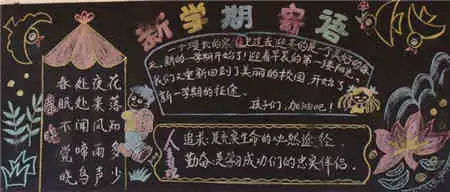 新学期寄语
春眠不觉晓
处处闻啼鸟
夜来风雨声
花落知多少
一个漫长的寒假已过去,迎来的是一个美好的春
天,新的一学期开始了!迎着早晨的第一缕阳光,
我们又重新回到了美丽的校园,开始了
新一学期的征途。
孩子们,加油吧!
人生
追求:是充实生命的必然途径.
勤奋:是学期成功们的忠实伴侣.